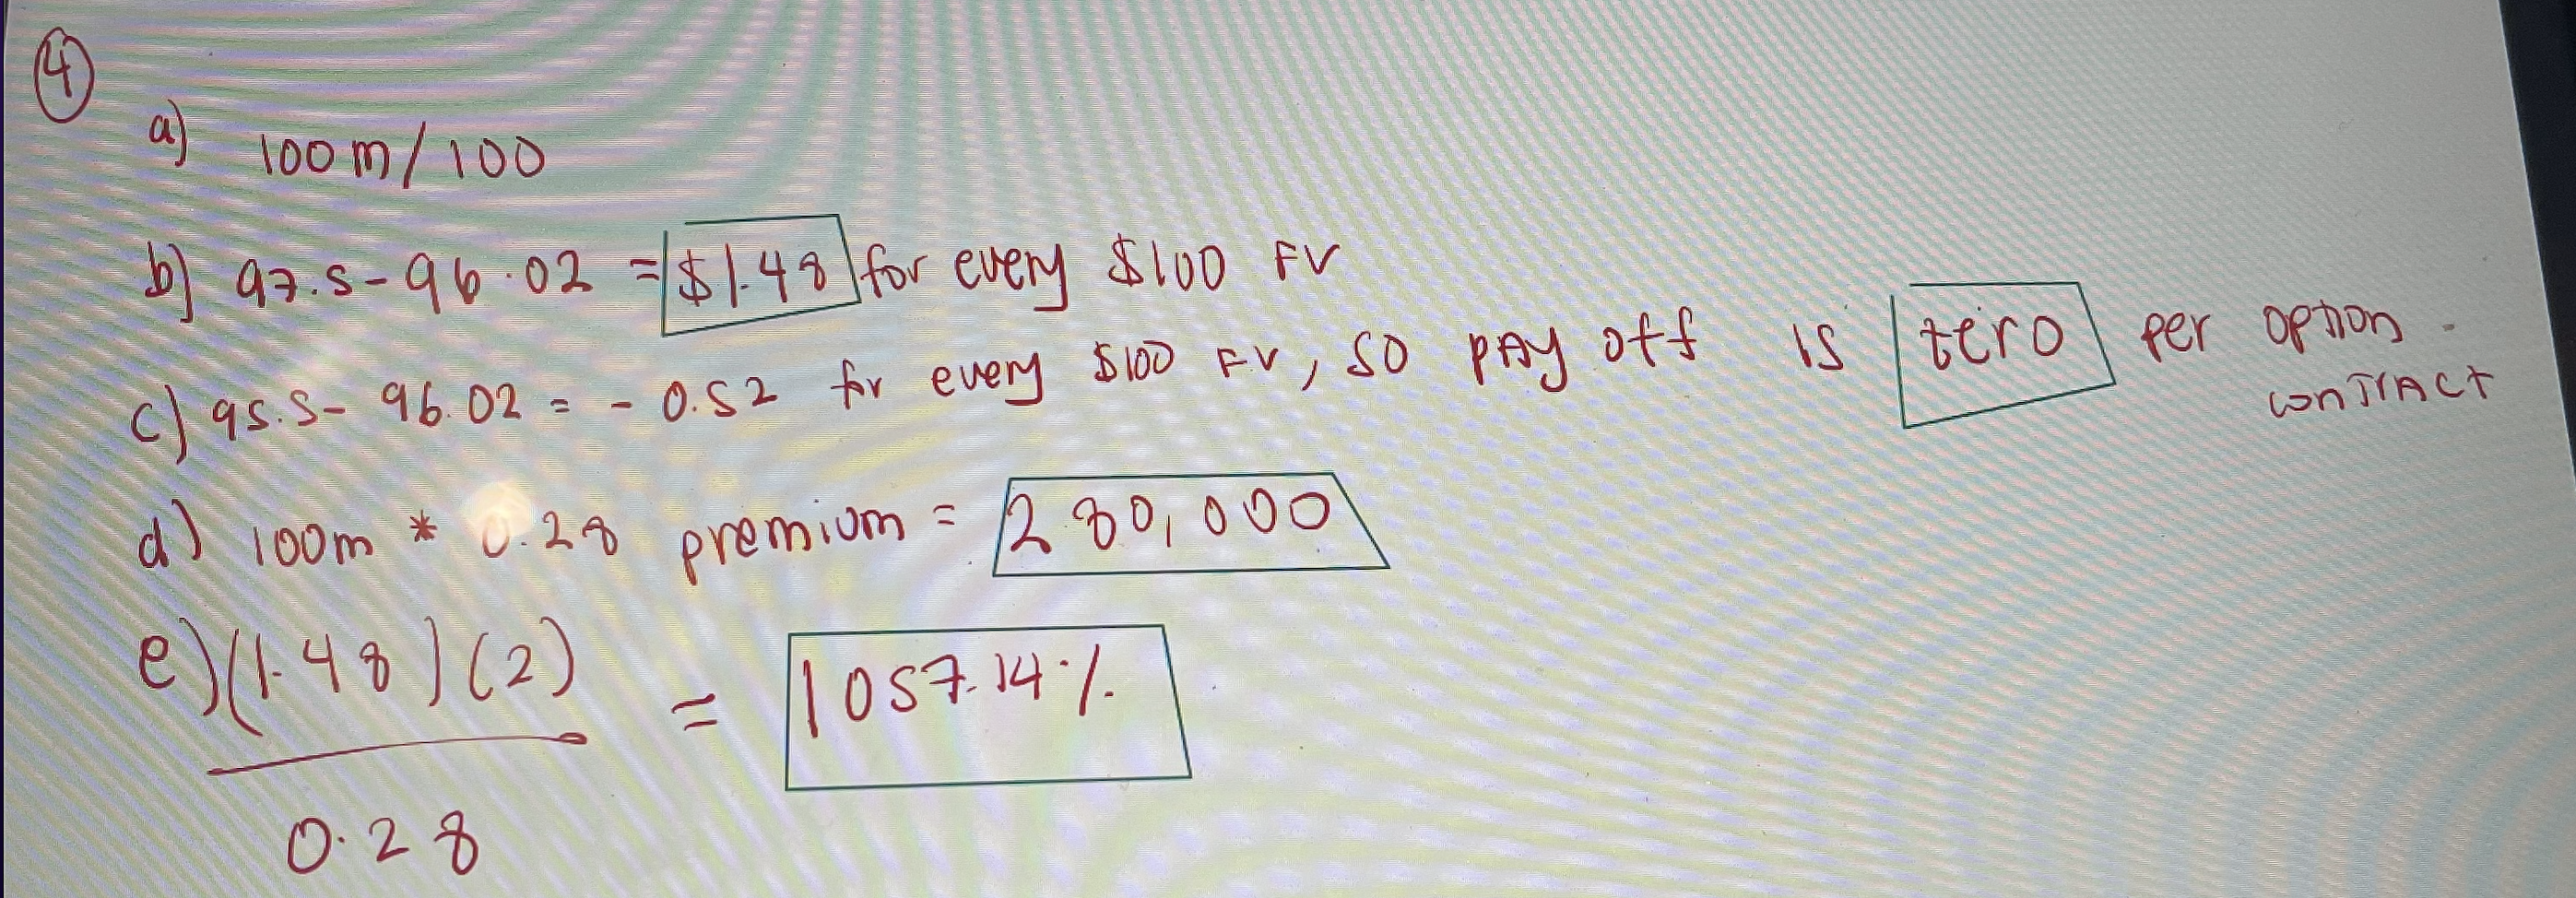 4
a) 100m/100
b) 97.5-96.02 = $1.48 for every $100 FV
c) 95.5- 96.02 = - 0.52 for every $100 FV, so pay off is zero per option contract
d) 100m * 0.28 premium = 280,000
e) (1.48)(2)
0.28
= 1057.14%